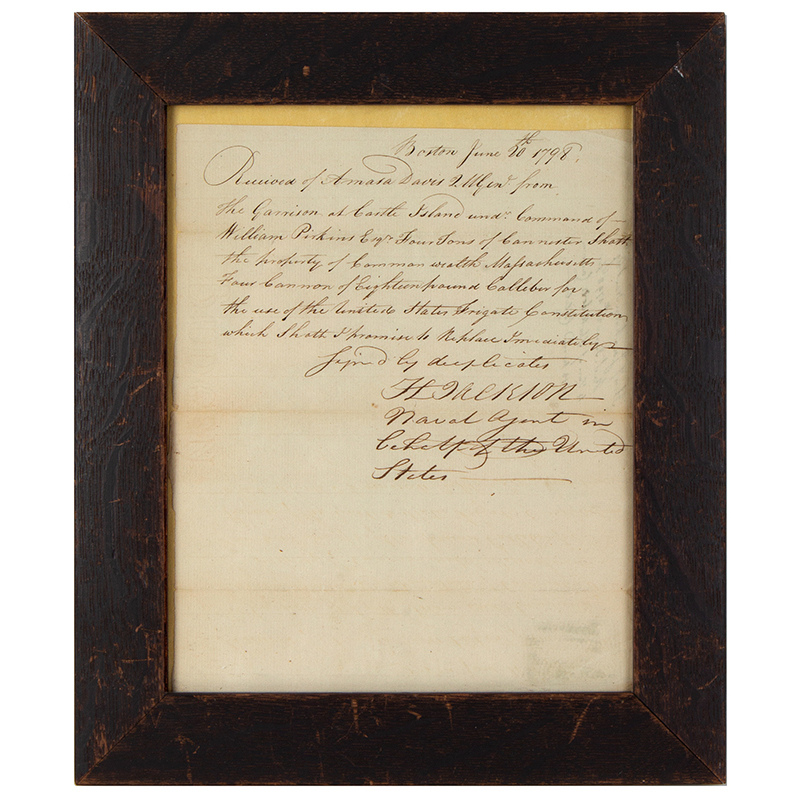 Boston June 20th 1798.
Received of Amasa Davis Q.M Genl. from
the Garrison at Castle Island undr. Command of—
William Pirkins Esqr. Four Tons of Cannester Shott
the property of Common wealth Massachusetts—
Four Cannon of Eighteen pound Calleber for
the use of the United States Frigate Constitution
which Shott I promise to Replace Immediately—
Sign'd by deuplicates
H JACKSON
Naval Agent in
behalf of the United
States